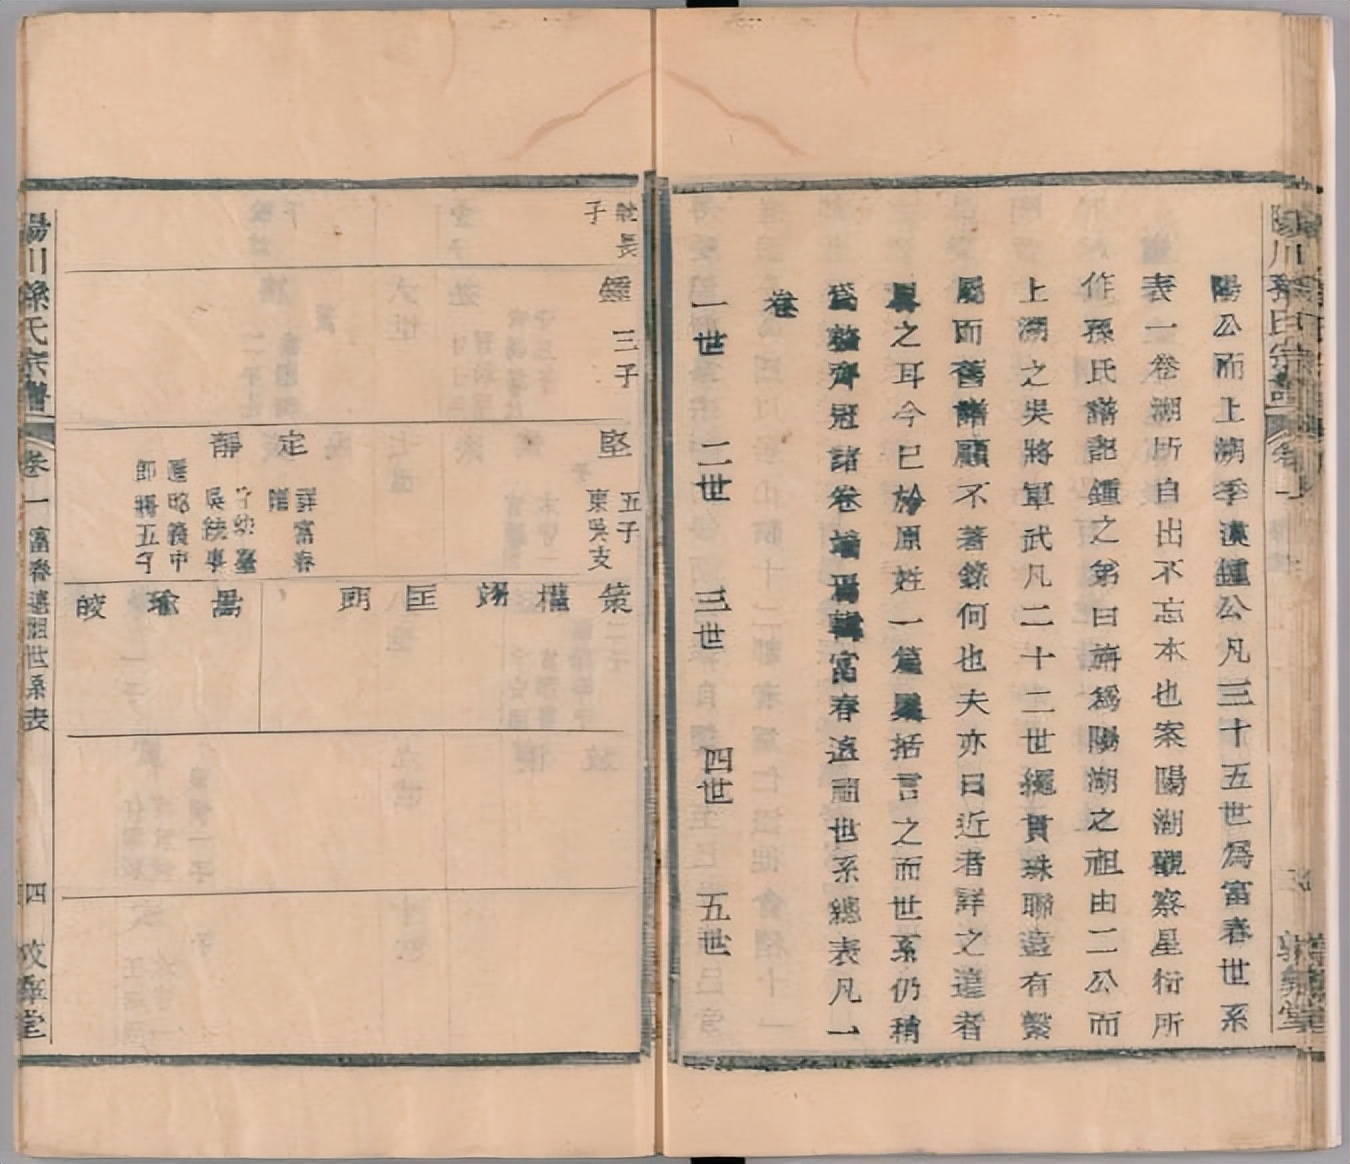 陽公而上湖季漢鍾公凡三十五世為富春世系
表一卷湖所自出不忘本也案陽湖觀察星衍所
作孫氏譜記鍾之弟曰旃為陽湖之祖由二公而
上湖之吳將軍武凡二十二世繩貫珠聯遠有繫
屬而舊譜顧不著錄何也夫亦曰近者詳之遠者
畧之耳今已於原姓一篇檃括言之而世系仍稍
為整齊冠諸卷端焉輯富春遠祖世系總表凡一
卷
一世 二世 三世 四世 五世
長
子
鍾 三子
堅 五子
東吳支
定 詳富春
譜
靜 子幼臺
吳統事
匡昭義中
郎將五子
策
權
翊
匡
朗
暠
瑜
皎
陽川孫氏宗譜 卷一 富春遠祖世系表 四 映雪堂